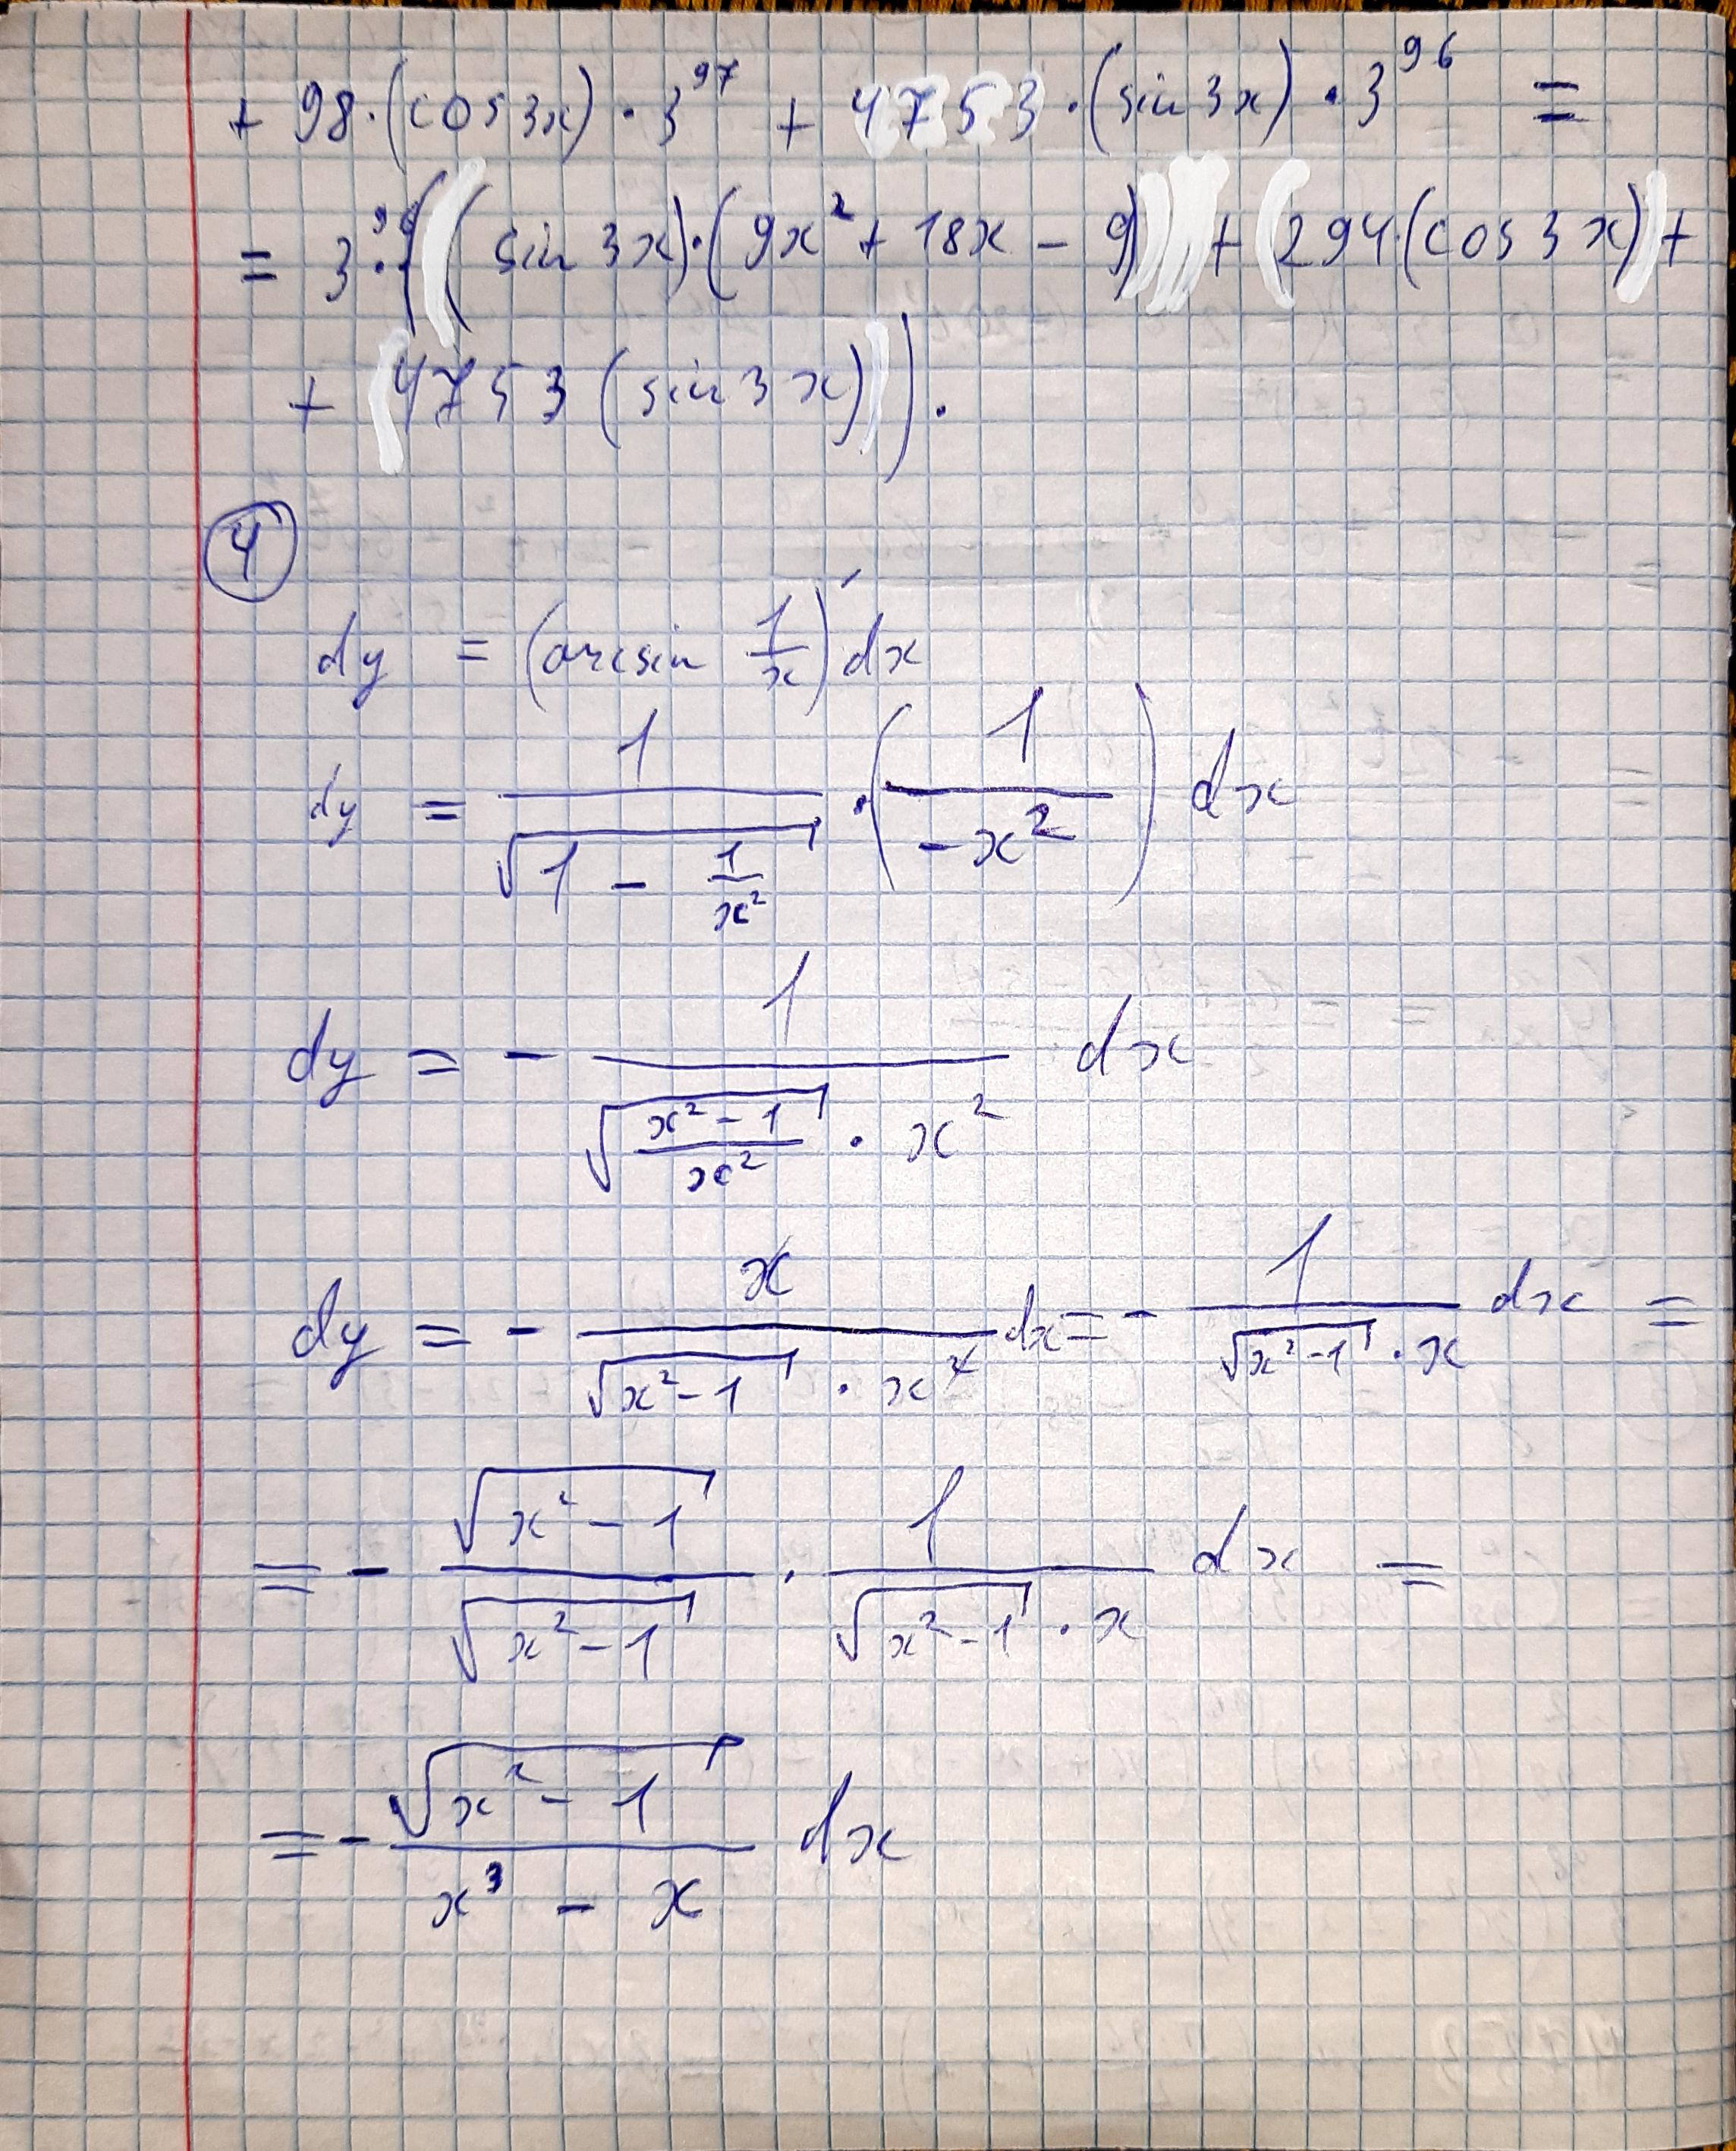 + 98·(cos 3x)·3^97 + 4753·(sin 3x)·3^96 =
= 3^96·((sin 3x)·(9x² + 18x - 9) + 294(cos 3x) +
+ 4753 (sin 3x)).
4
dy = (arcsin 1/x)' dx
dy = 1/√(1 - 1/x²) · (1/(-x²)) dx
dy = - 1/(√((x² - 1)/x²) · x²) dx
dy = - x/(√(x² - 1) · x²) dx = - 1/(√(x² - 1) · x) dx =
= - √(x² - 1)/√(x² - 1) · 1/(√(x² - 1) · x) dx =
= - √(x² - 1)/(x³ - x) dx